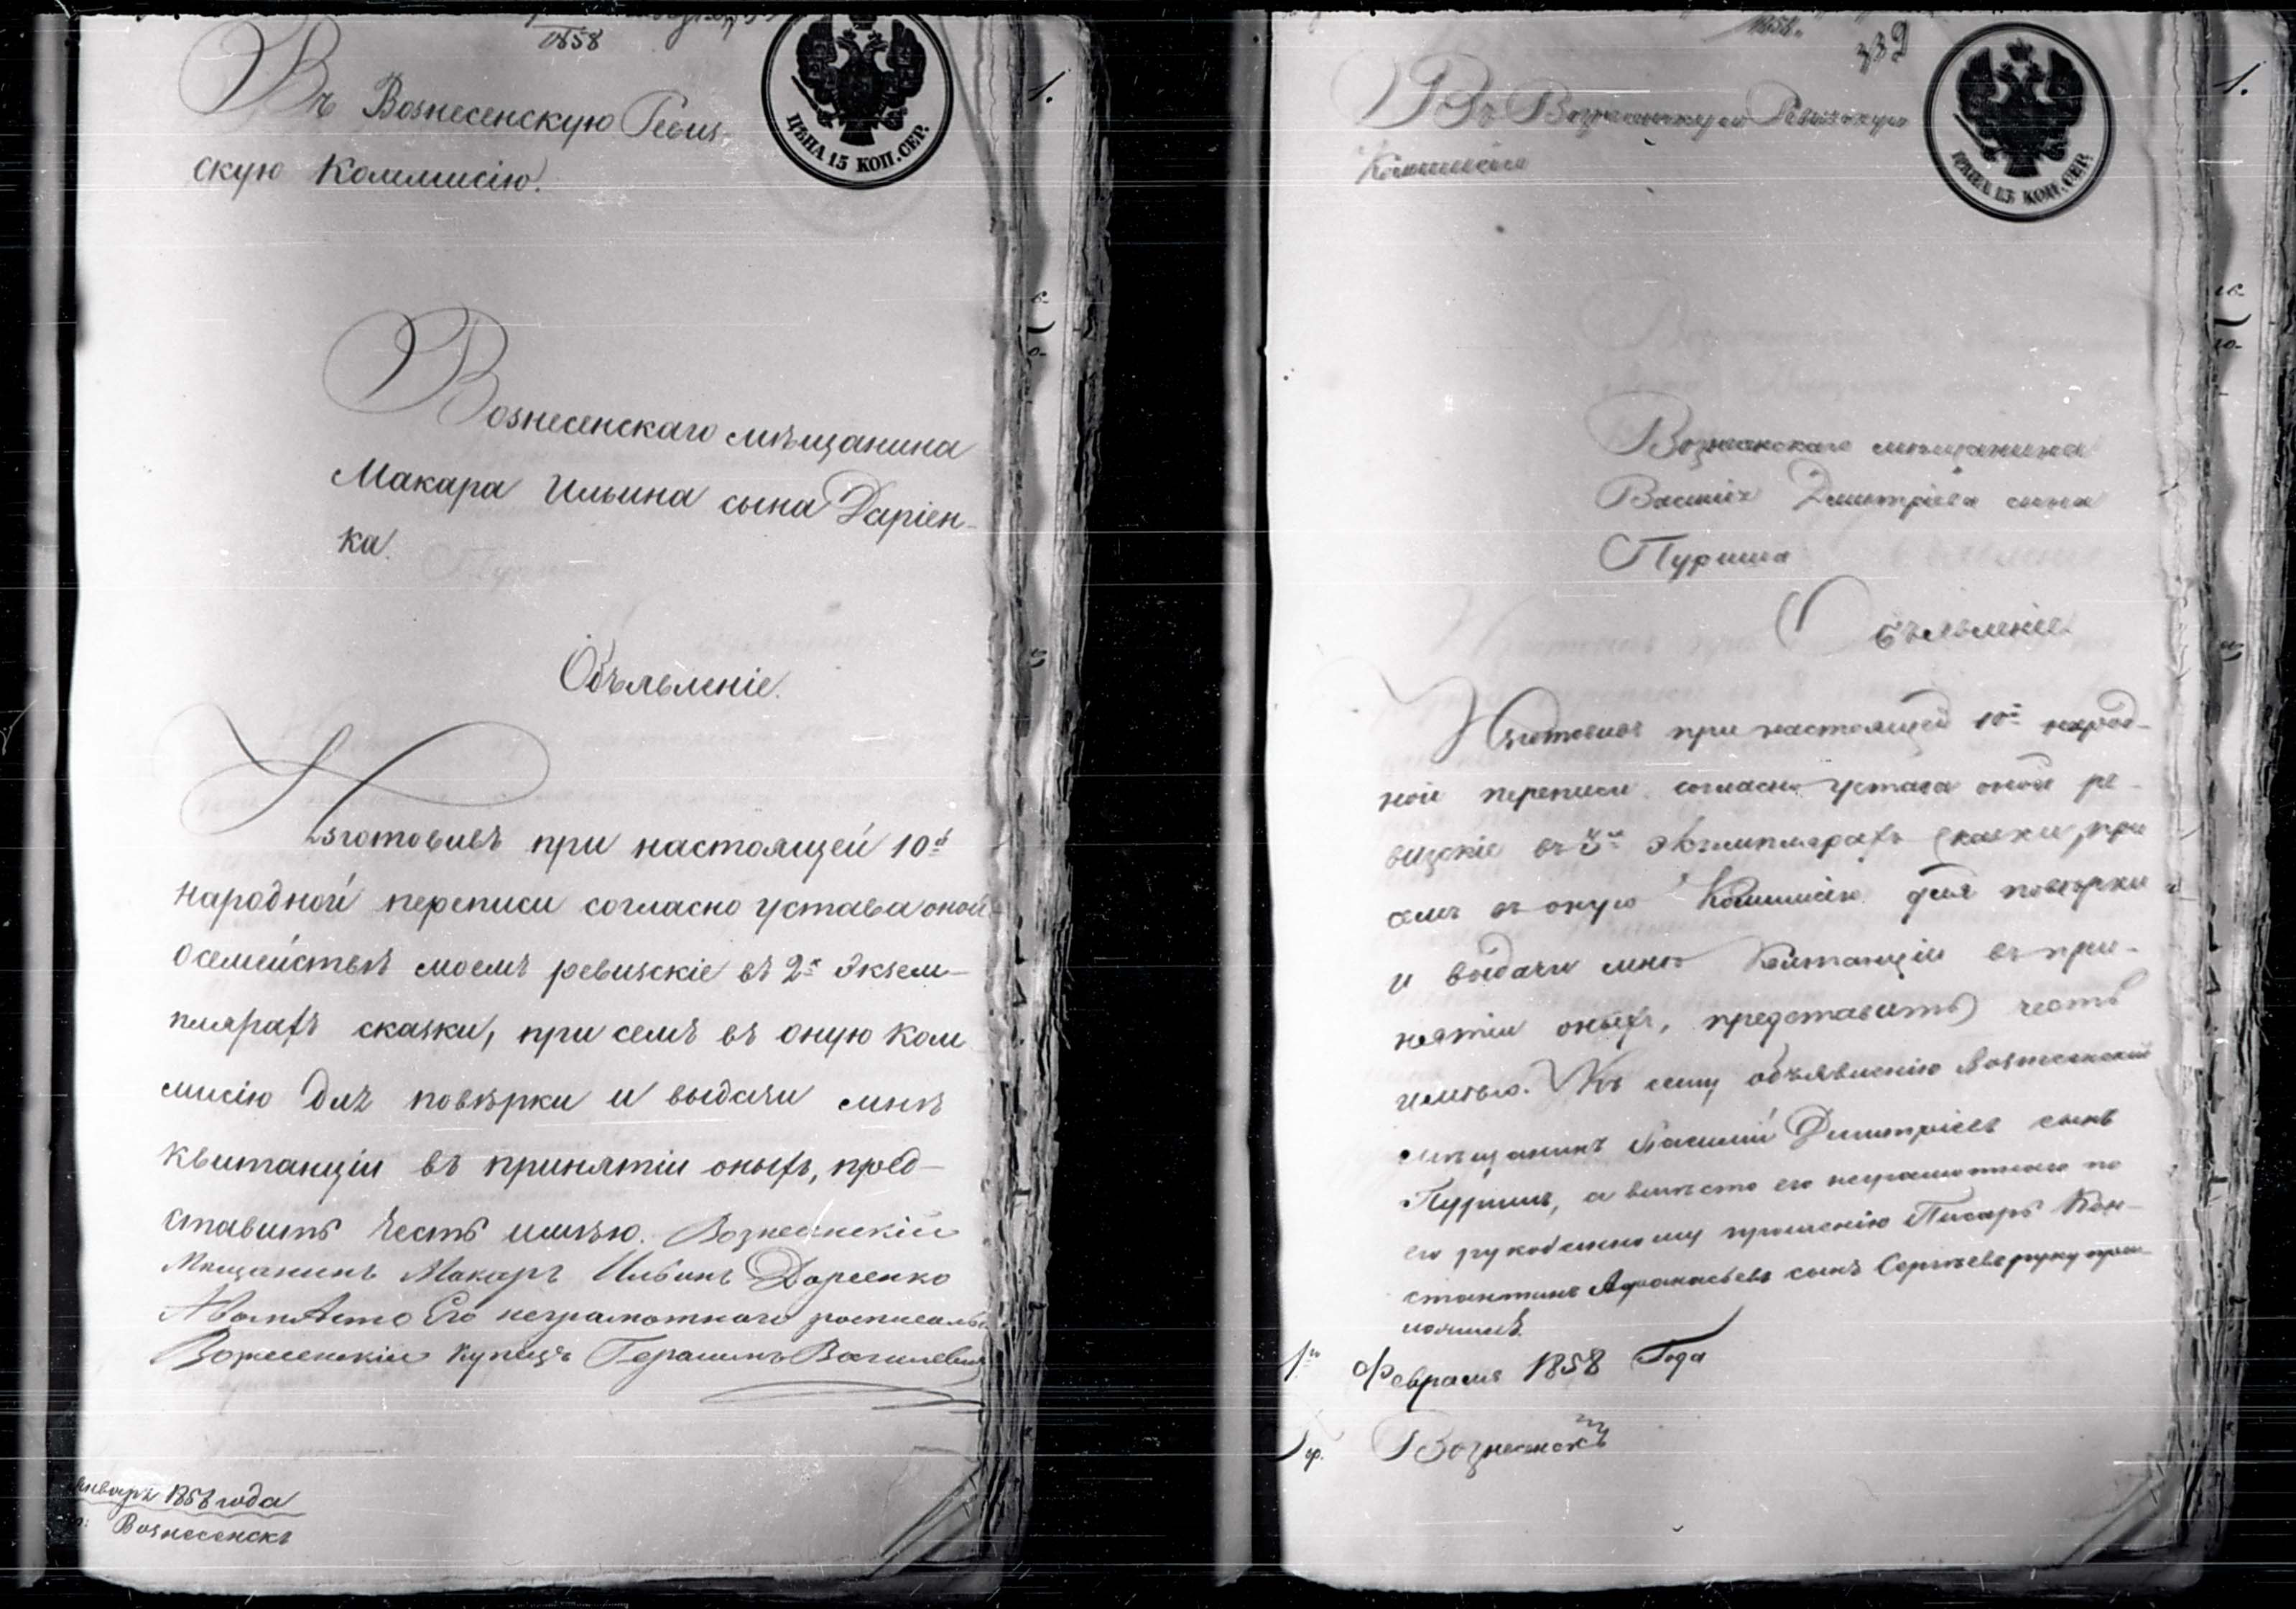 1858
Въ Вознесенскую Ревиз-
скую Коммисію.
ЦѢНА 15 КОП. СЕР.
Вознесенскаго мѣщанина
Макара Ильина сына Даріен-
ка.
Объявленіе.
Изготовивъ при настоящей 10й
народной переписи согласно устава оной
о семействѣ моемъ ревизскіе въ 2х экзем-
плярахъ сказки, при семъ въ оную Ком
мисію для повѣрки и выдачи мнѣ
квитанціи въ принятіи оныхъ, пред-
ставить честь имѣю. Вознесенскій
Мещанинъ Макаръ Ильинъ Дареенко
А вместо Его неграмотного росписалъ
Вознесенскій купецъ Герасимъ Васильевъ
Январь 1858 года
Вознесенскъ
1858
332
Въ Вознесенскую Ревизскую
Комисію
ЦѢНА 15 КОП. СЕР.
Вознесенскаго мѣщанина
Василія Дмитріева сына
Пурина
Объявленіе.
Изготовивъ при настоящей 10й народ-
ной переписи согласно устава оной ре-
визскіе въ экземплярахъ сказки, при
семъ въ оную Комисію для повѣрки
и выдачи мнѣ квитанціи въ при-
нятіи оныхъ, представить честь
имѣю. Къ сему объявленію Вознесенскій
мѣщанинъ Василій Димитріевъ сынъ
Пуринъ, а вмѣсто его неграмотнаго по
его рукоданному прошенію Писарь Кон-
стантинъ Афанасьевъ сынъ Сергѣевъ руку при-
ложилъ.
Февраля 1858 Года
Вознесенскъ